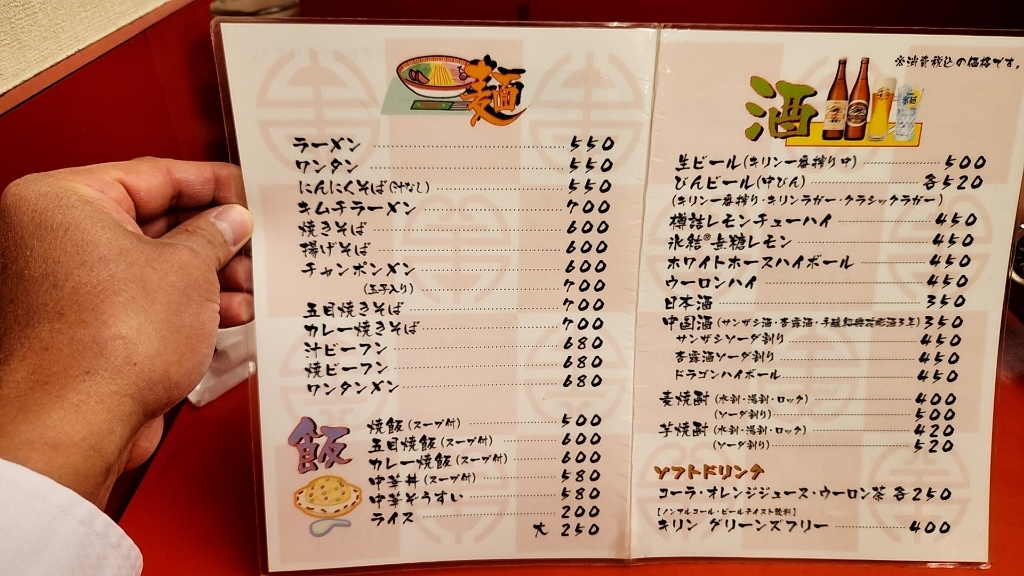 麺
ラーメン 550
ワンタン 550
にんにくそば(汁なし) 550
キムチラーメン 700
焼きそば 600
揚げそば 600
チャンポンメン 600
(玉子入り) 700
五目焼きそば 700
カレー焼きそば 700
汁ビーフン 680
焼ビーフン 680
ワンタンメン 680
飯
焼飯(スープ付) 500
五目焼飯(スープ付) 600
カレー焼飯(スープ付) 600
中華丼(スープ付) 580
中華ぞうすい 580
ライス 200
大 250
※消費税込の価格です。
酒
生ビール(キリン一番搾り中) 500
びんビール(中びん) 各520
(キリン一番搾り・キリンラガー・クラシックラガー)
樽詰レモンチューハイ 450
氷結®無糖レモン 450
ホワイトホースハイボール 450
ウーロンハイ 450
日本酒 350
中国酒(サンザシ酒・杏露酒・ 350
サンザシソーダ割り 450
杏露酒ソーダ割り 450
ドラゴンハイボール 450
麦焼酎(水割・湯割・ロック) 400
(ソーダ割り) 500
芋焼酎(水割・湯割・ロック) 420
(ソーダ割り) 520
ソフトドリンク
コーラ・オレンジジュース・ウーロン茶 各250
[ノンアルコール・ビールテイスト飲料]
キリン グリーンズフリー 400